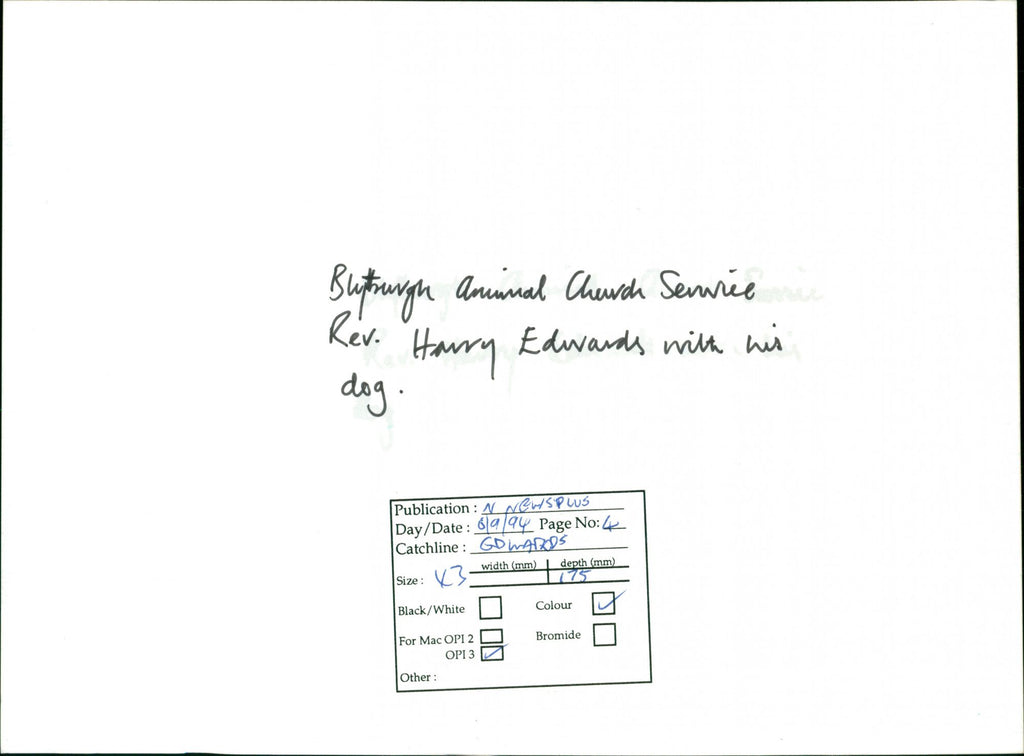 Blythburgh Animal Church Service
Rev. Harry Edwards with his
dog.
Publication : N NEWSPLUS
Day/Date : 6/9/94 Page No: 4
Catchline : EDWARDS
Size : x3 width (mm) depth (mm) 175
Black/White Colour ✓
For Mac OPI 2 Bromide
OPI 3 ✓
Other :